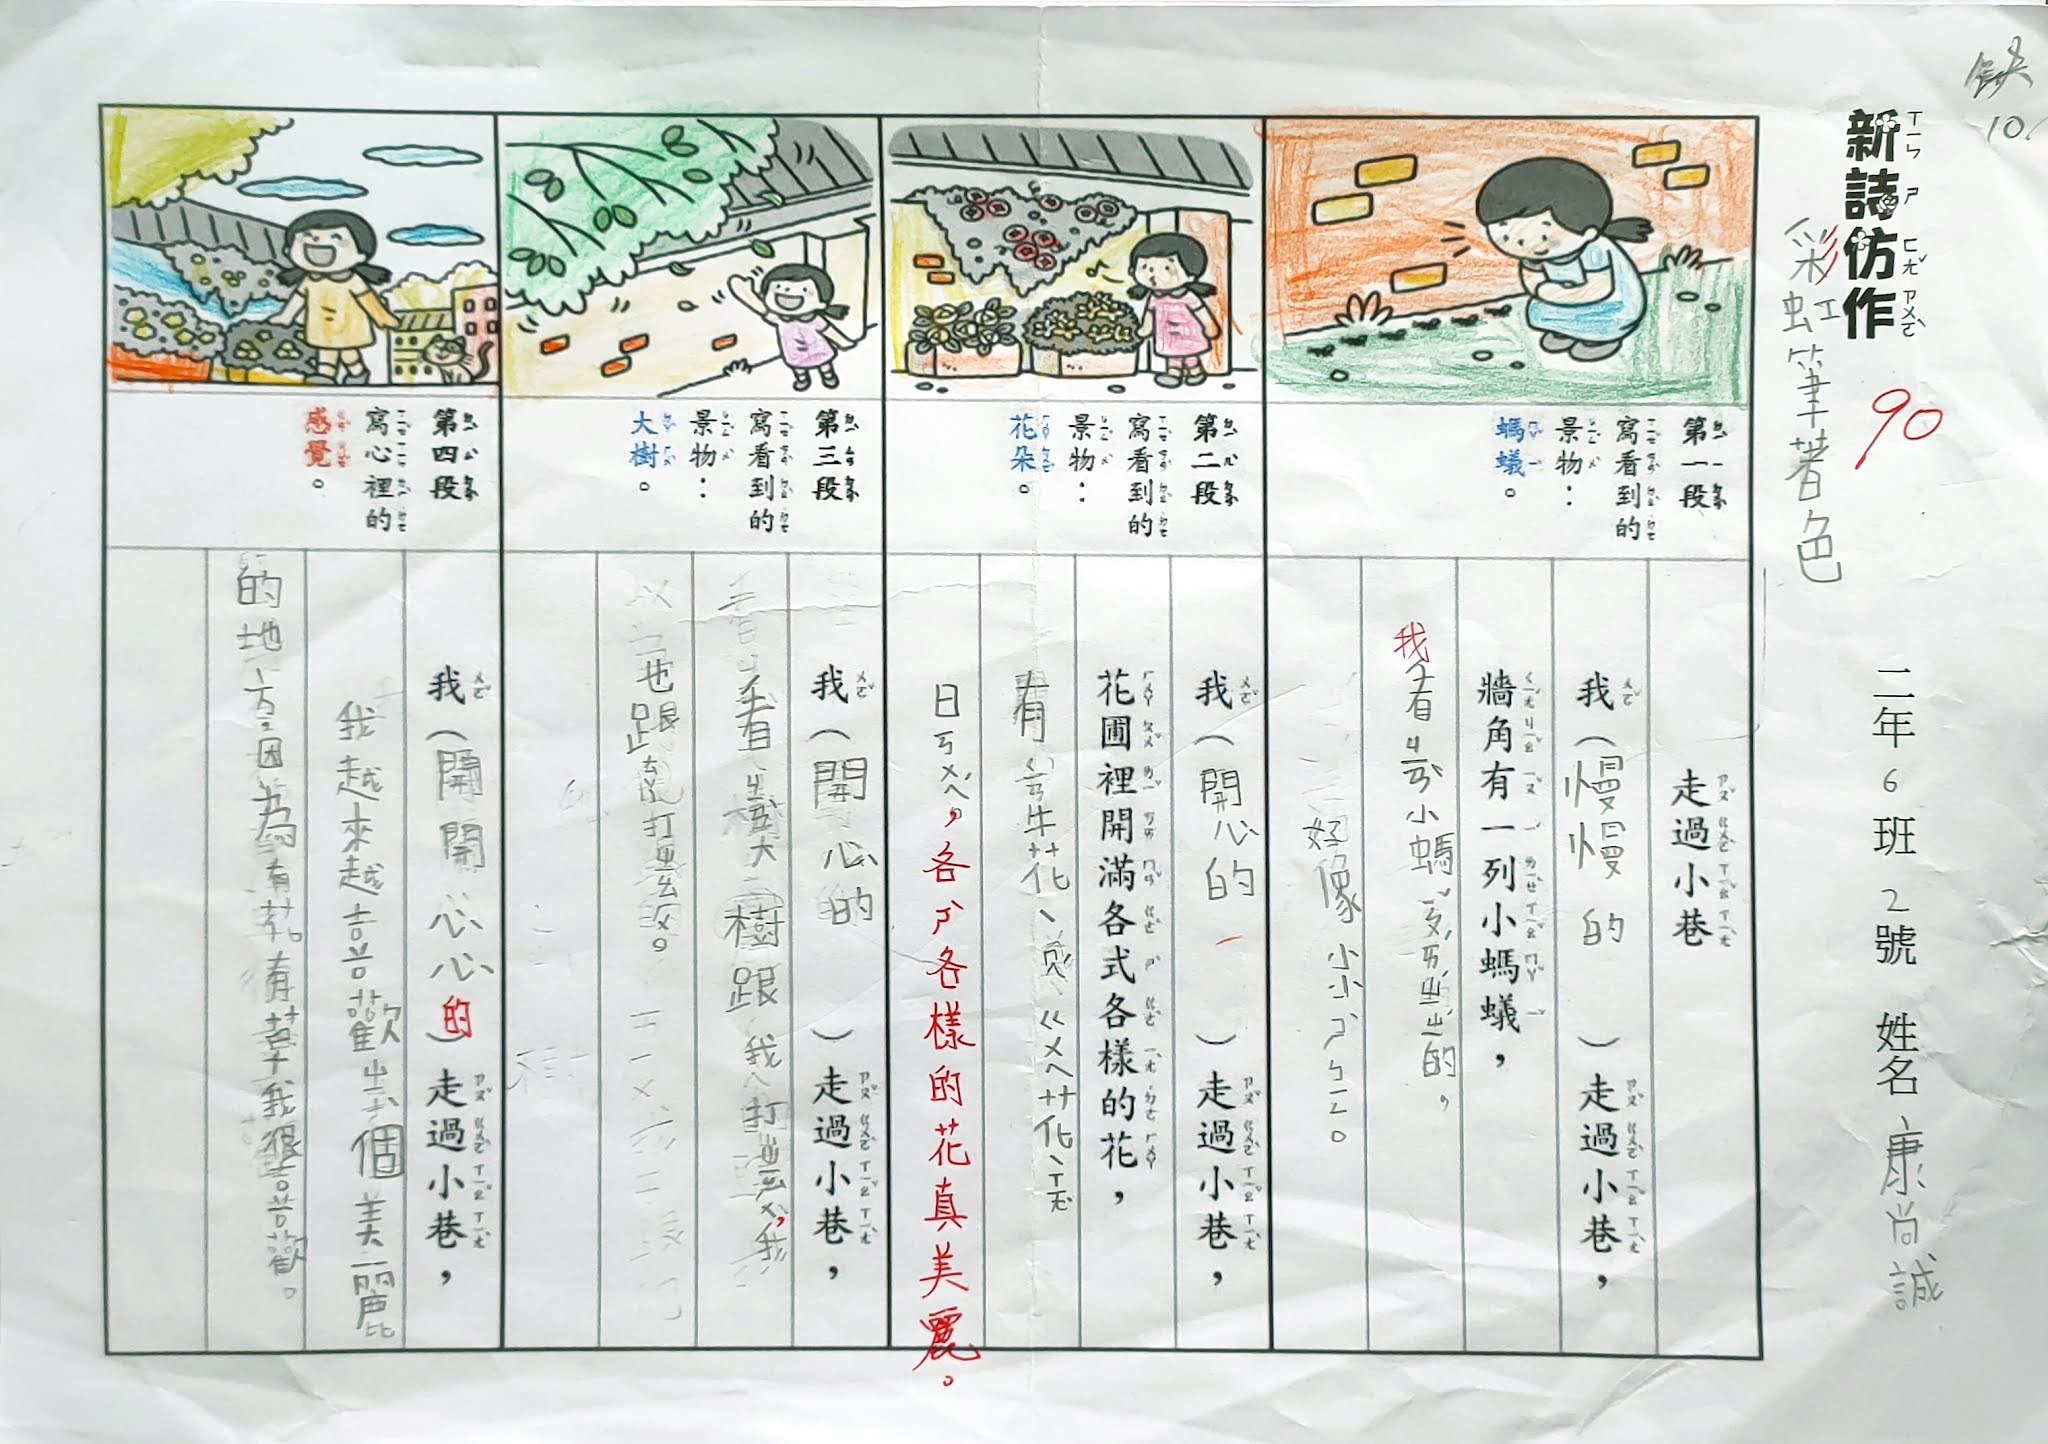 缺
10.
新詩仿作
ㄒㄧㄣ ㄕ ㄈㄤˇ ㄗㄨㄛˋ
90
二年6班2號 姓名康尚誠
彩虹筆著色
第一段
寫看到的
景物：
螞蟻。
走過小巷
我（慢慢的）走過小巷，
牆角有一列小螞蟻，
我看ㄐㄢˋ小螞ㄧˇㄆㄞˊㄓㄥˇㄓㄥˇ的，
好像小小ㄕˋㄅㄧㄥ。
第二段
寫看到的
景物：
花朵。
我（開心的）走過小巷，
花圃裡開滿各式各樣的花，
有ㄑㄢ牛花、ㄇㄟˊㄍㄨㄟ花、ㄒㄤˋ
日ㄎㄨㄟˊ，各ㄕˋ各樣的花真美麗。
第三段
寫看到的
景物：
大樹。
我（開心的）走過小巷，
看ㄐㄢˋ大樹跟我打ㄓㄠ ㄏㄨ，我
也跟ㄊㄚ打ㄓㄠ ㄏㄨ。
第四段
寫心裡的
感覺。
我（開開心心的）走過小巷，
我越來越喜歡ㄓㄜˋ個美麗
的地方ㄧㄣ因為有花有草我很喜歡。